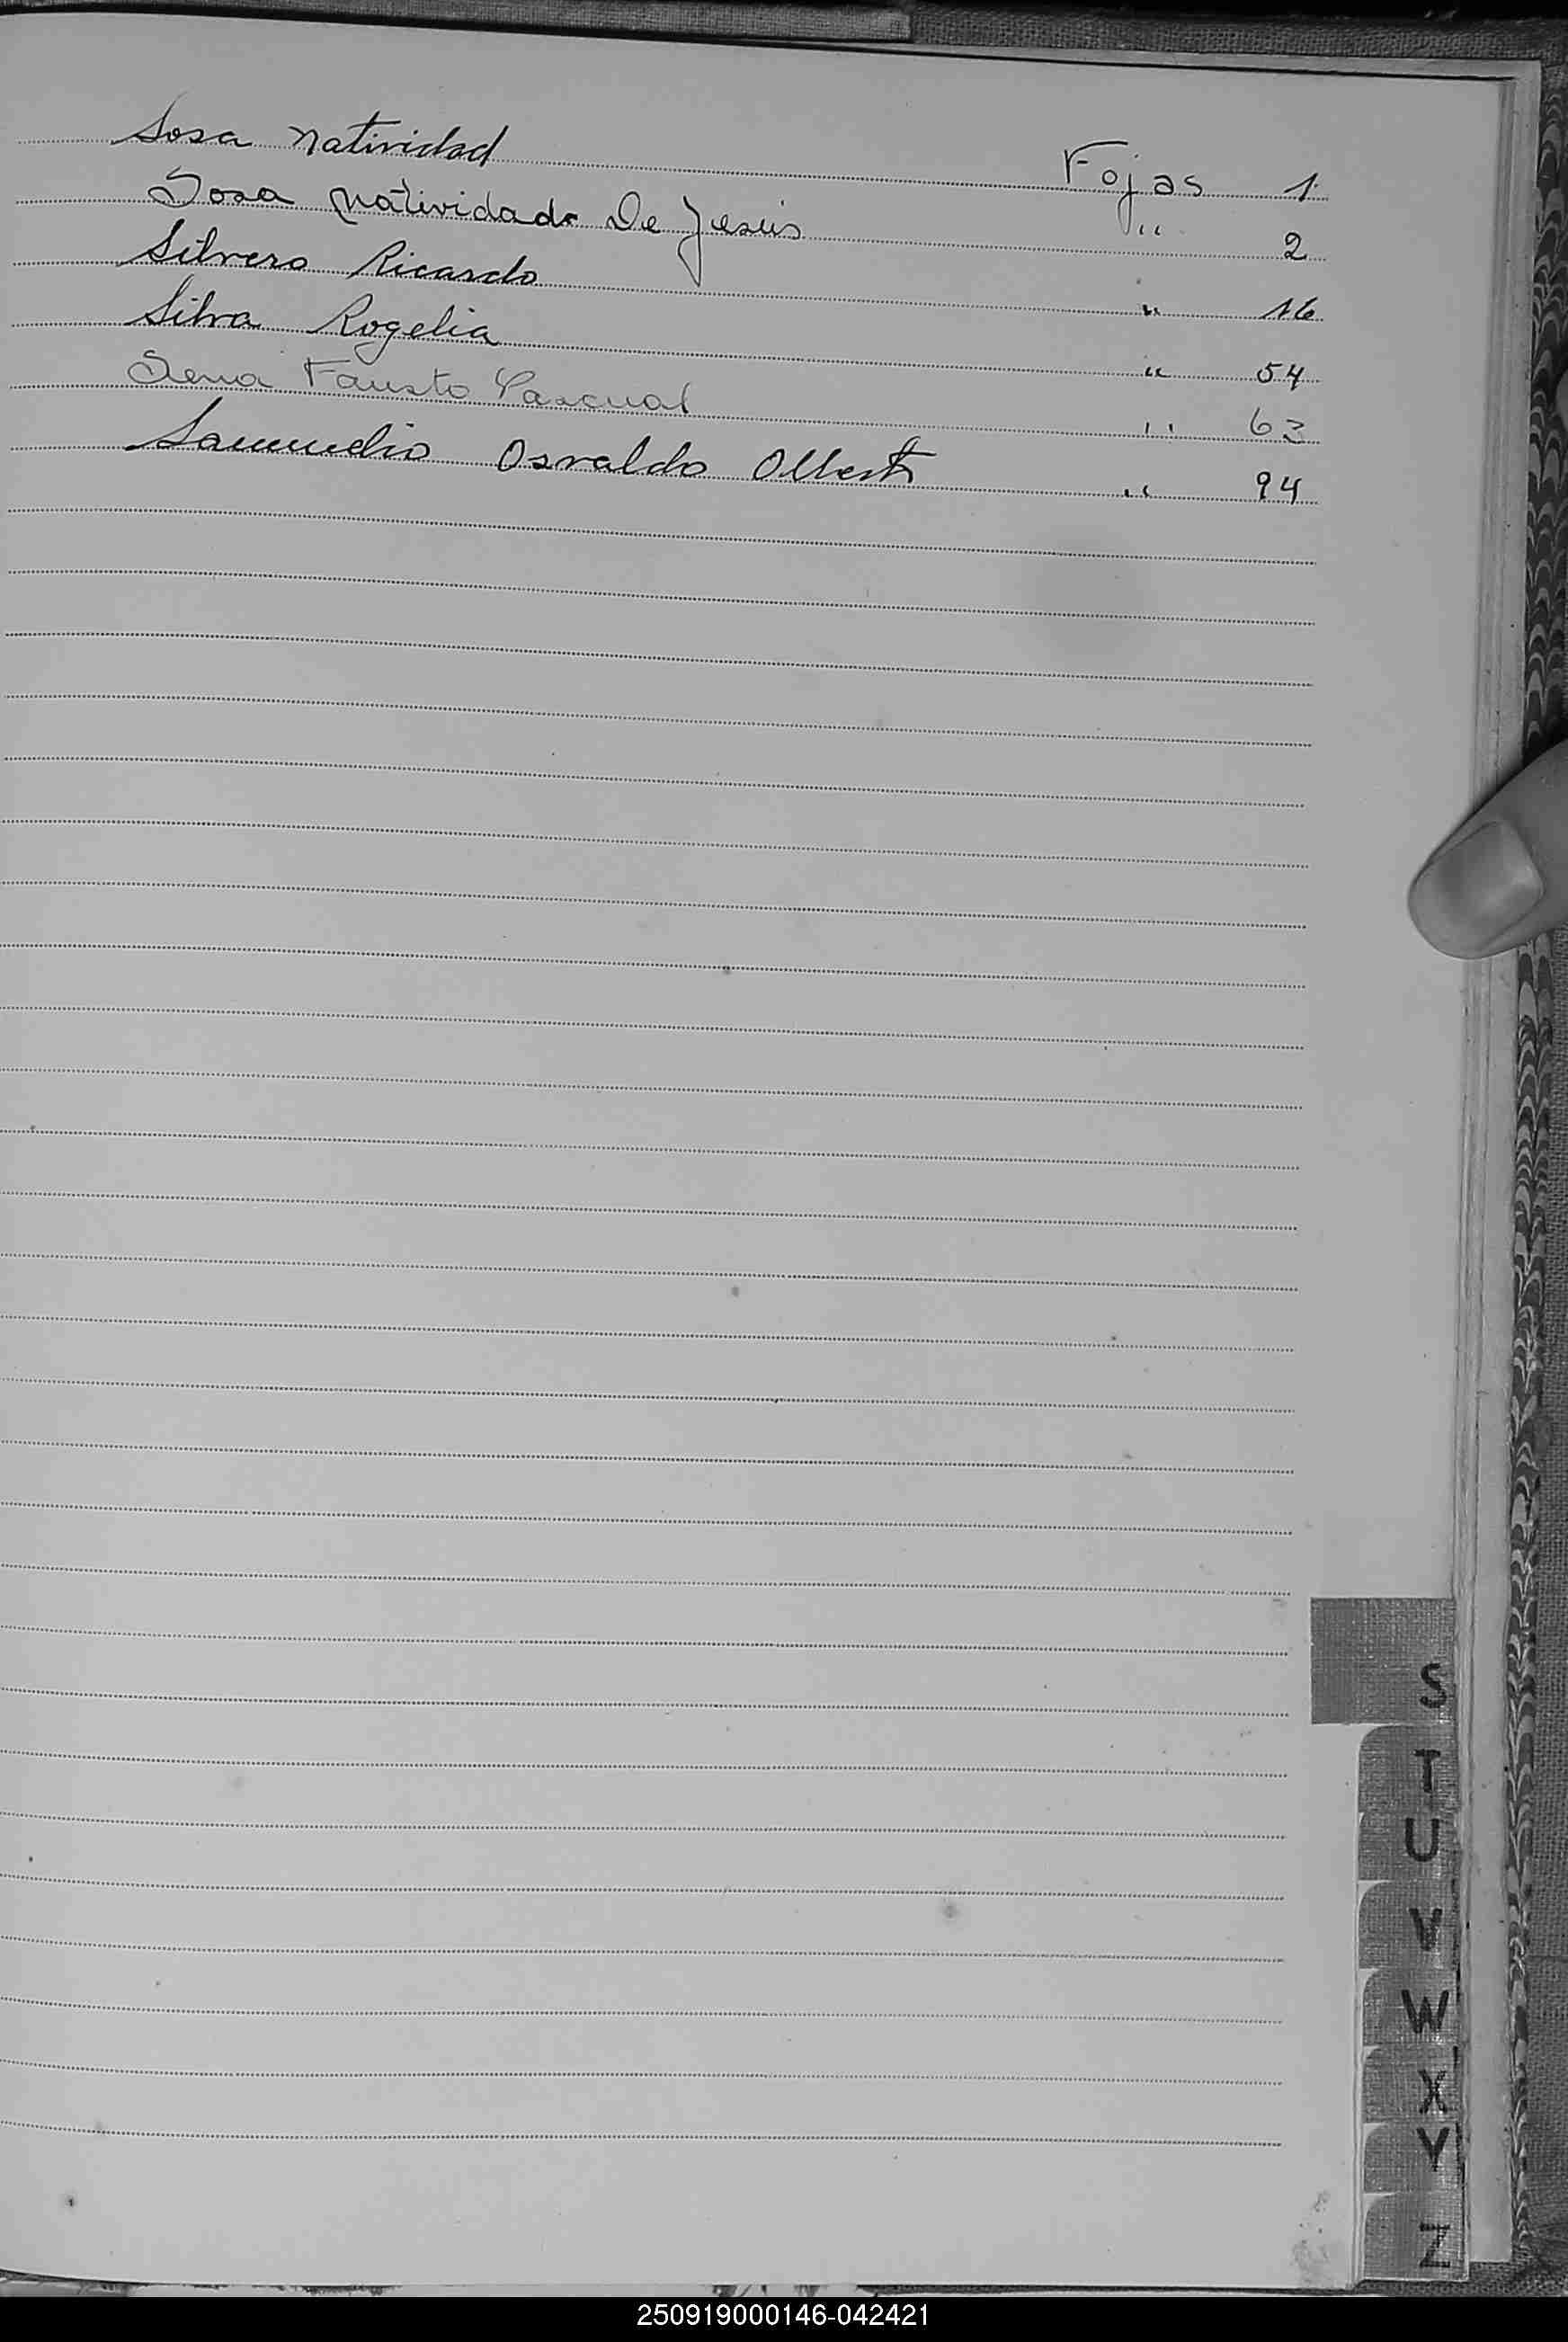 Sosa Natividad Fojas 1
Sosa Natividad De Jesús " 2
Silvero Ricardo " 16
Silva Rogelia " 54
Sena Fausto Pascual " 63
Samudio Osvaldo Alberto " 94
S
T
U
V
W
X
Y
Z
250919000146-042421